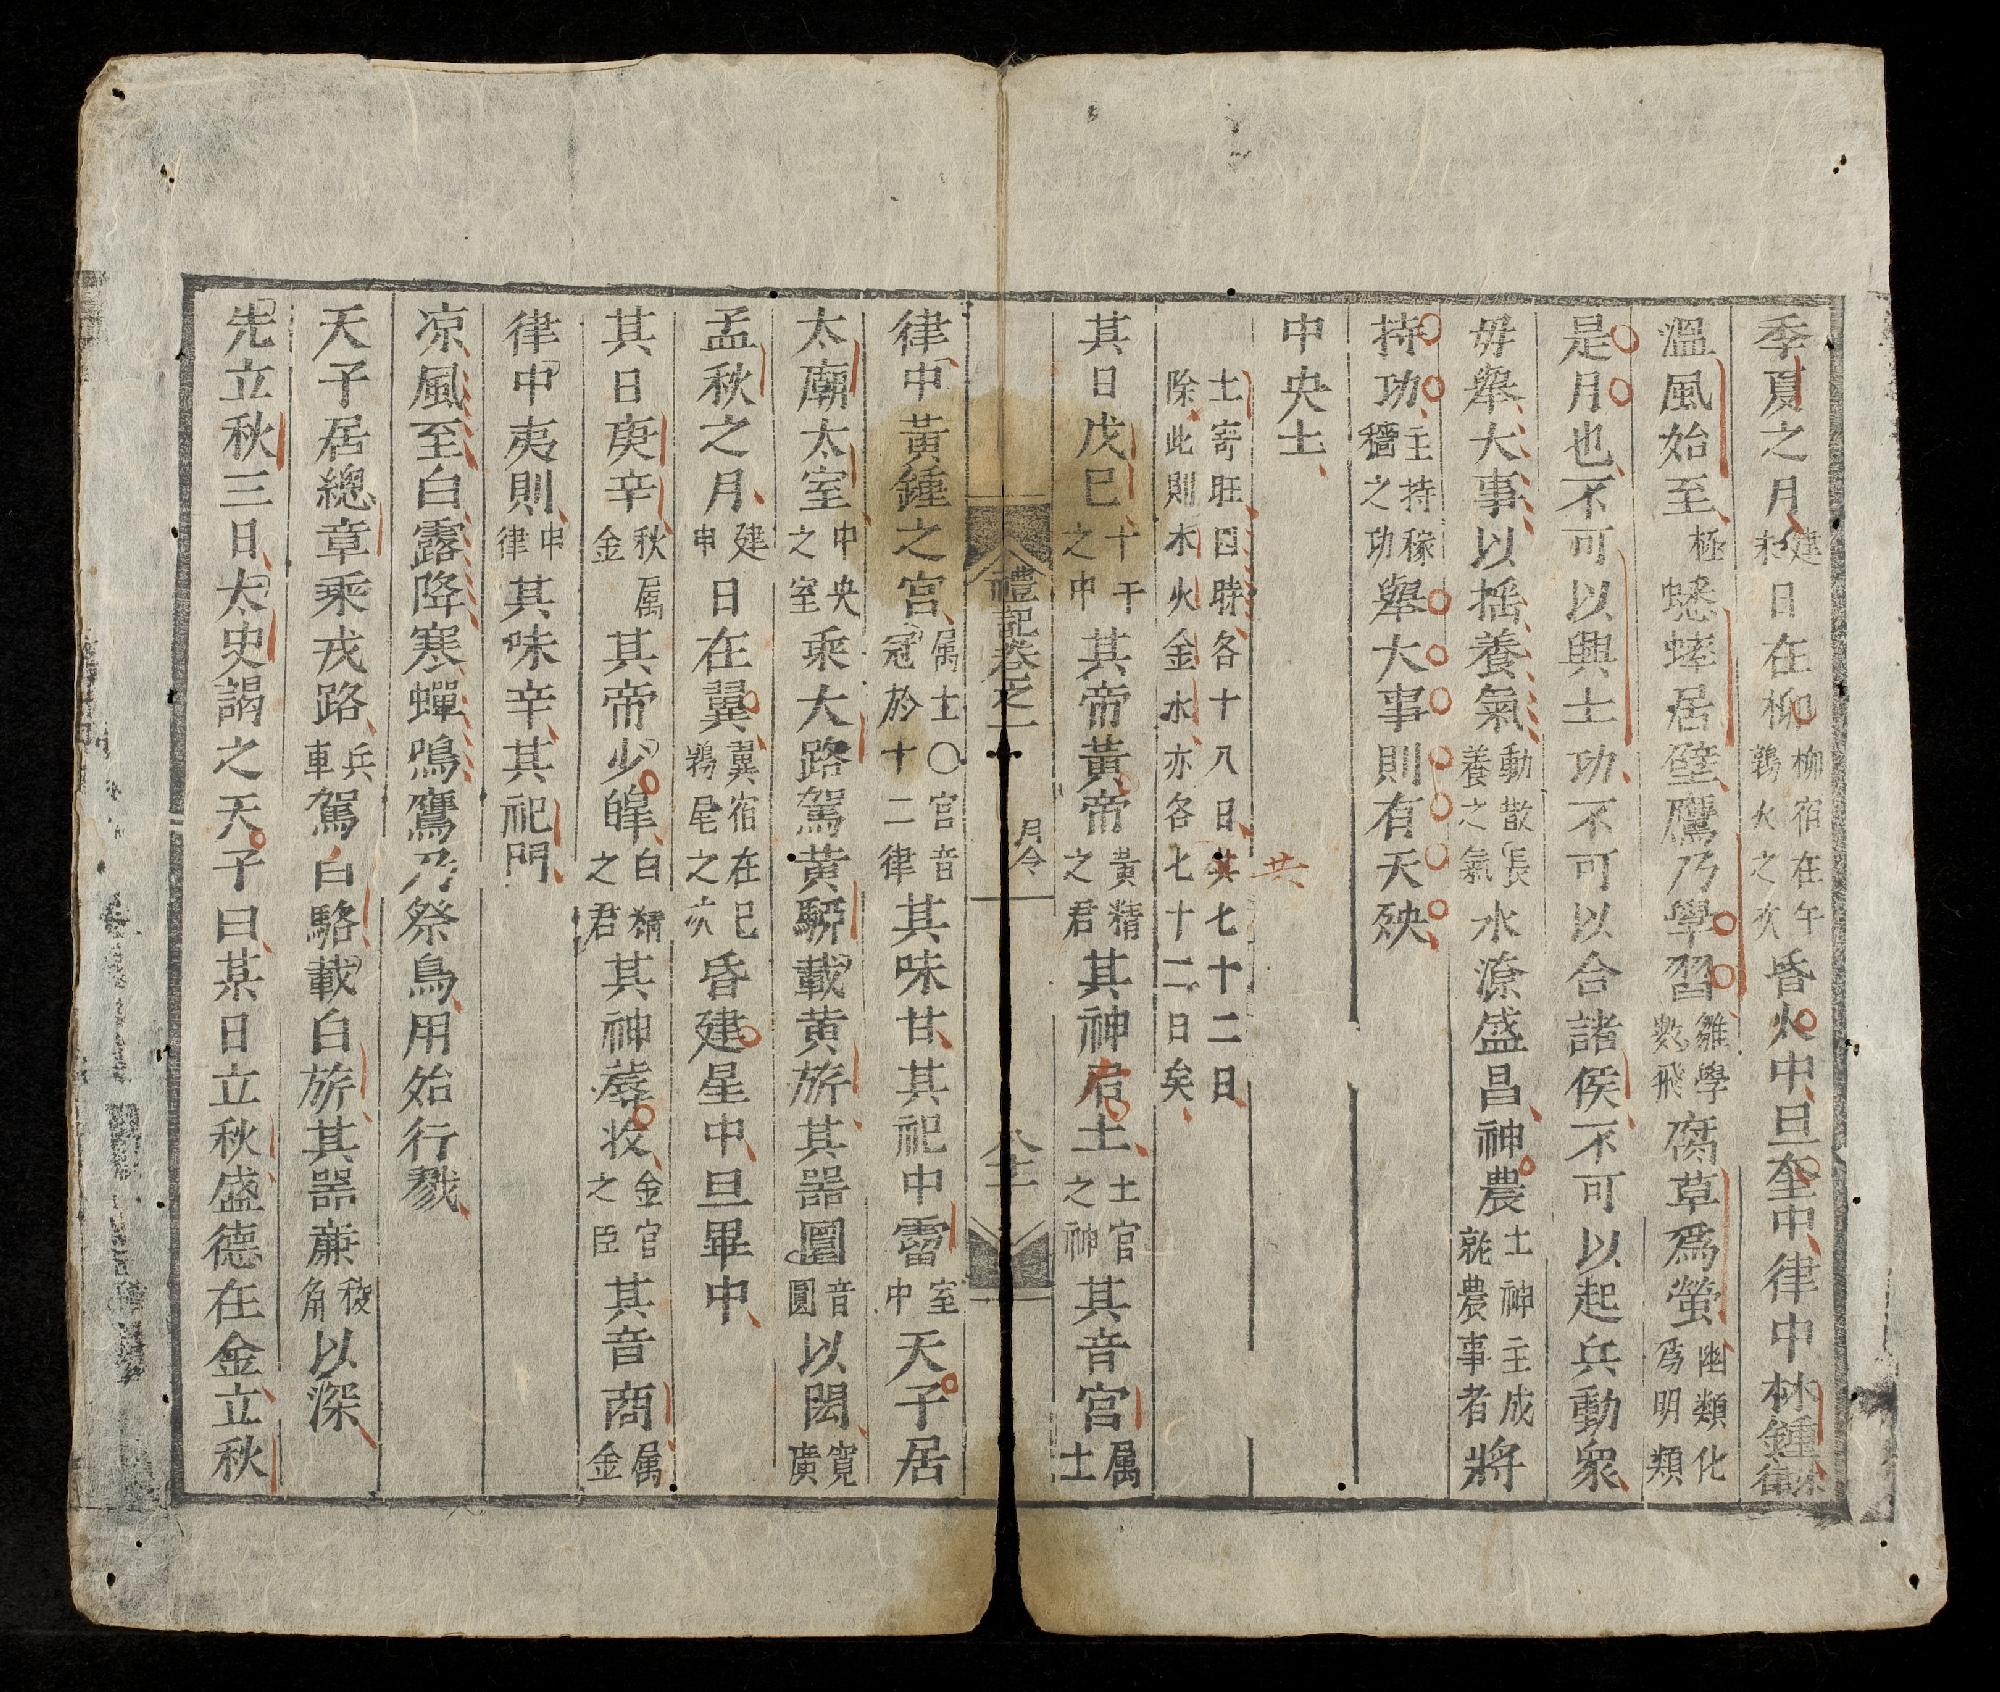 季夏之月建未日在柳柳宿在午鶉火之次昏火中旦奎中律中林鍾
溫風始至極蟋蟀居壁鷹乃學習雛學數飛腐草爲螢幽類化爲明類
是月也不可以興土功不可以合諸侯不可以起兵動衆
毋舉大事以搖養氣動散長養之氣水潦盛昌神農土神主成就農事者將
持功主持稼穡之功舉大事則有天殃
中央土
土寄旺四時各十八日共七十二日
除此則木火金水亦各七十二日矣
共
其日戊己十干之中其帝黃帝黃精之君其神后土土官之神其音宮属土
禮記卷之一
月令
律中黃鍾之宮属土〇宮音冠於十二律其味甘其祀中霤室中天子居
太廟太室中央之室乘大路駕黃駵載黃旂其器圜音圓以閎寬廣
孟秋之月建申日在翼翼宿在巳鶉尾之次昏建星中旦畢中
其日庚辛秋属金其帝少皞白精之君其神蓐收金官之臣其音商属金
律中夷則申律其味辛其祀門
凉風至白露降寒蟬鳴鷹乃祭鳥用始行戮
天子居總章乘戎路兵車駕白駱載白旂其器廉稜角以深
先立秋三日太史謁之天子曰某日立秋盛德在金立秋